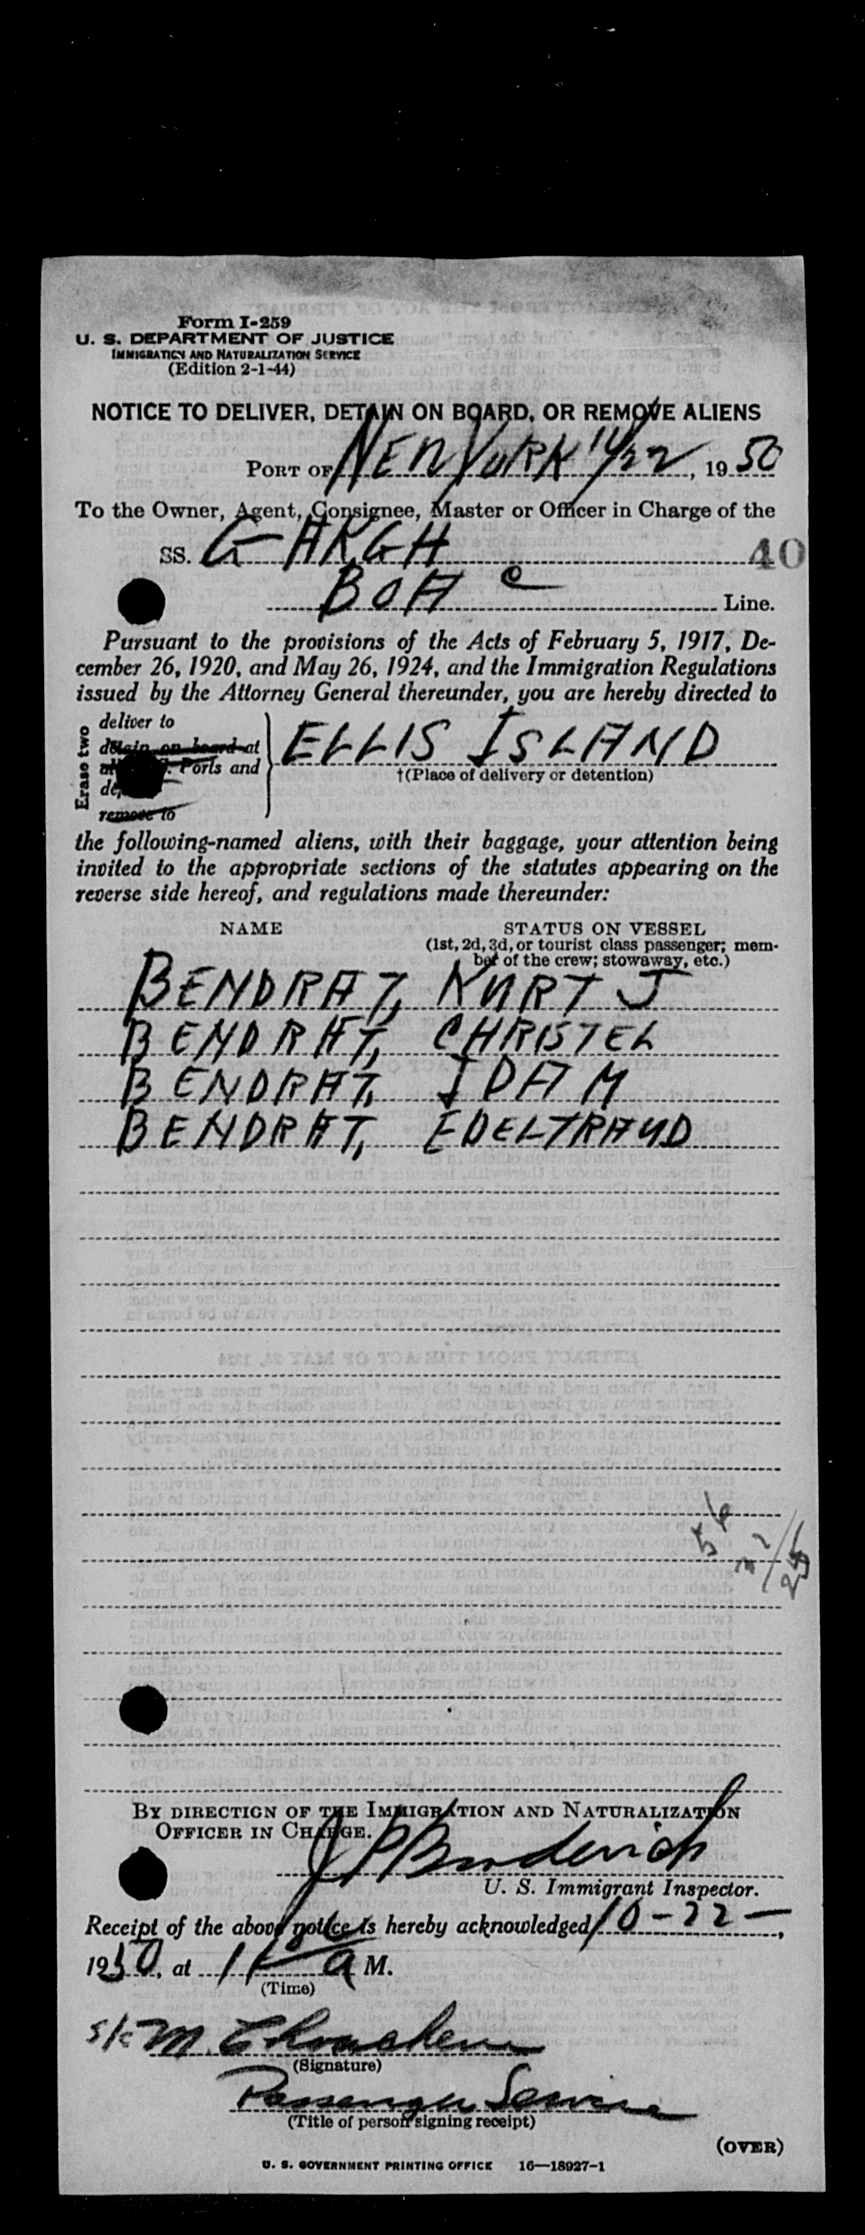 Form I-259
U. S. DEPARTMENT OF JUSTICE
IMMIGRATION AND NATURALIZATION SERVICE
(Edition 2-1-44)
NOTICE TO DELIVER, DETAIN ON BOARD, OR REMOVE ALIENS
PORT OF NEW YORK 10/22, 1950
To the Owner, Agent, Consignee, Master or Officer in Charge of the
SS. G-AKGH 40
BOAC Line.
Pursuant to the provisions of the Acts of February 5, 1917, De-
cember 26, 1920, and May 26, 1924, and the Immigration Regulations
issued by the Attorney General thereunder, you are hereby directed to
Erase two
deliver to
detain on board at
Ports and
remove to
ELLIS ISLAND
†(Place of delivery or detention)
the following-named aliens, with their baggage, your attention being
invited to the appropriate sections of the statutes appearing on the
reverse side hereof, and regulations made thereunder:
NAME STATUS ON VESSEL
(1st, 2d, 3d, or tourist class passenger; mem-
ber of the crew; stowaway, etc.)
BENDRAT, KURT J
BENDRAT, CHRISTEL
BENDRAT, IDA M
BENDRAT, EDELTRAUD
56
22/25
BY DIRECTION OF THE IMMIGRATION AND NATURALIZATION
OFFICER IN CHARGE.
J P Broderick
U. S. Immigrant Inspector.
Receipt of the above notice is hereby acknowledged 10-22-,
1950, at A M.
(Time)
M.
(Signature)
Passenger Service
(Title of person signing receipt)
(OVER)
U. S. GOVERNMENT PRINTING OFFICE 16—18927-1